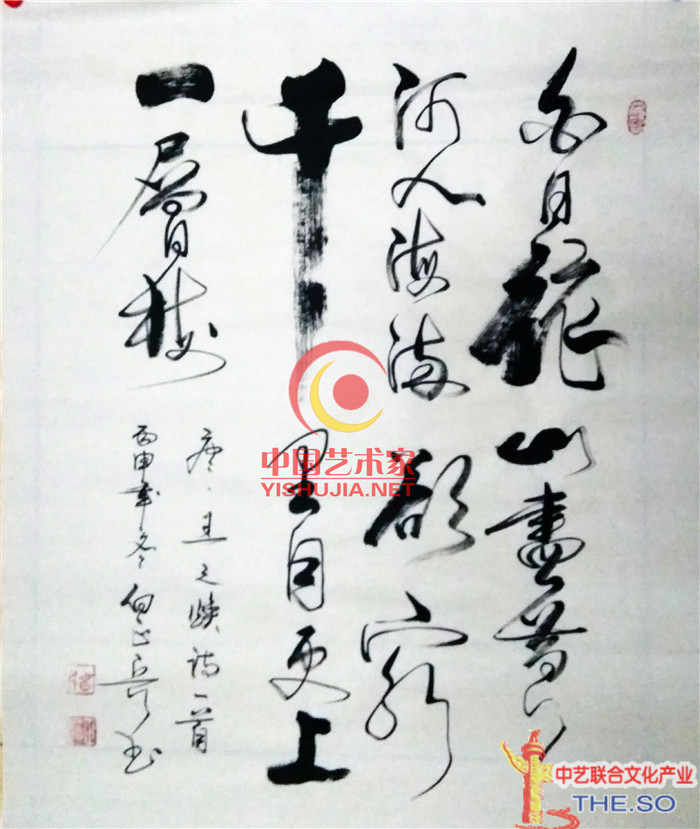 白日依山盡黄
河入海流欲窮
千里目更上
一層樓
唐·王之渙诗一首
丙申年冬书
中国艺术家
YISHUJIA.NET
中艺联合文化产业
THE.SO